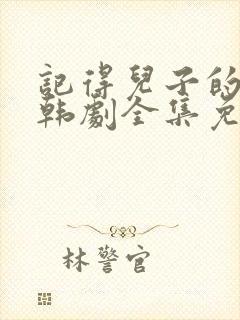 記得兒子的
韩劇全集免
林警官